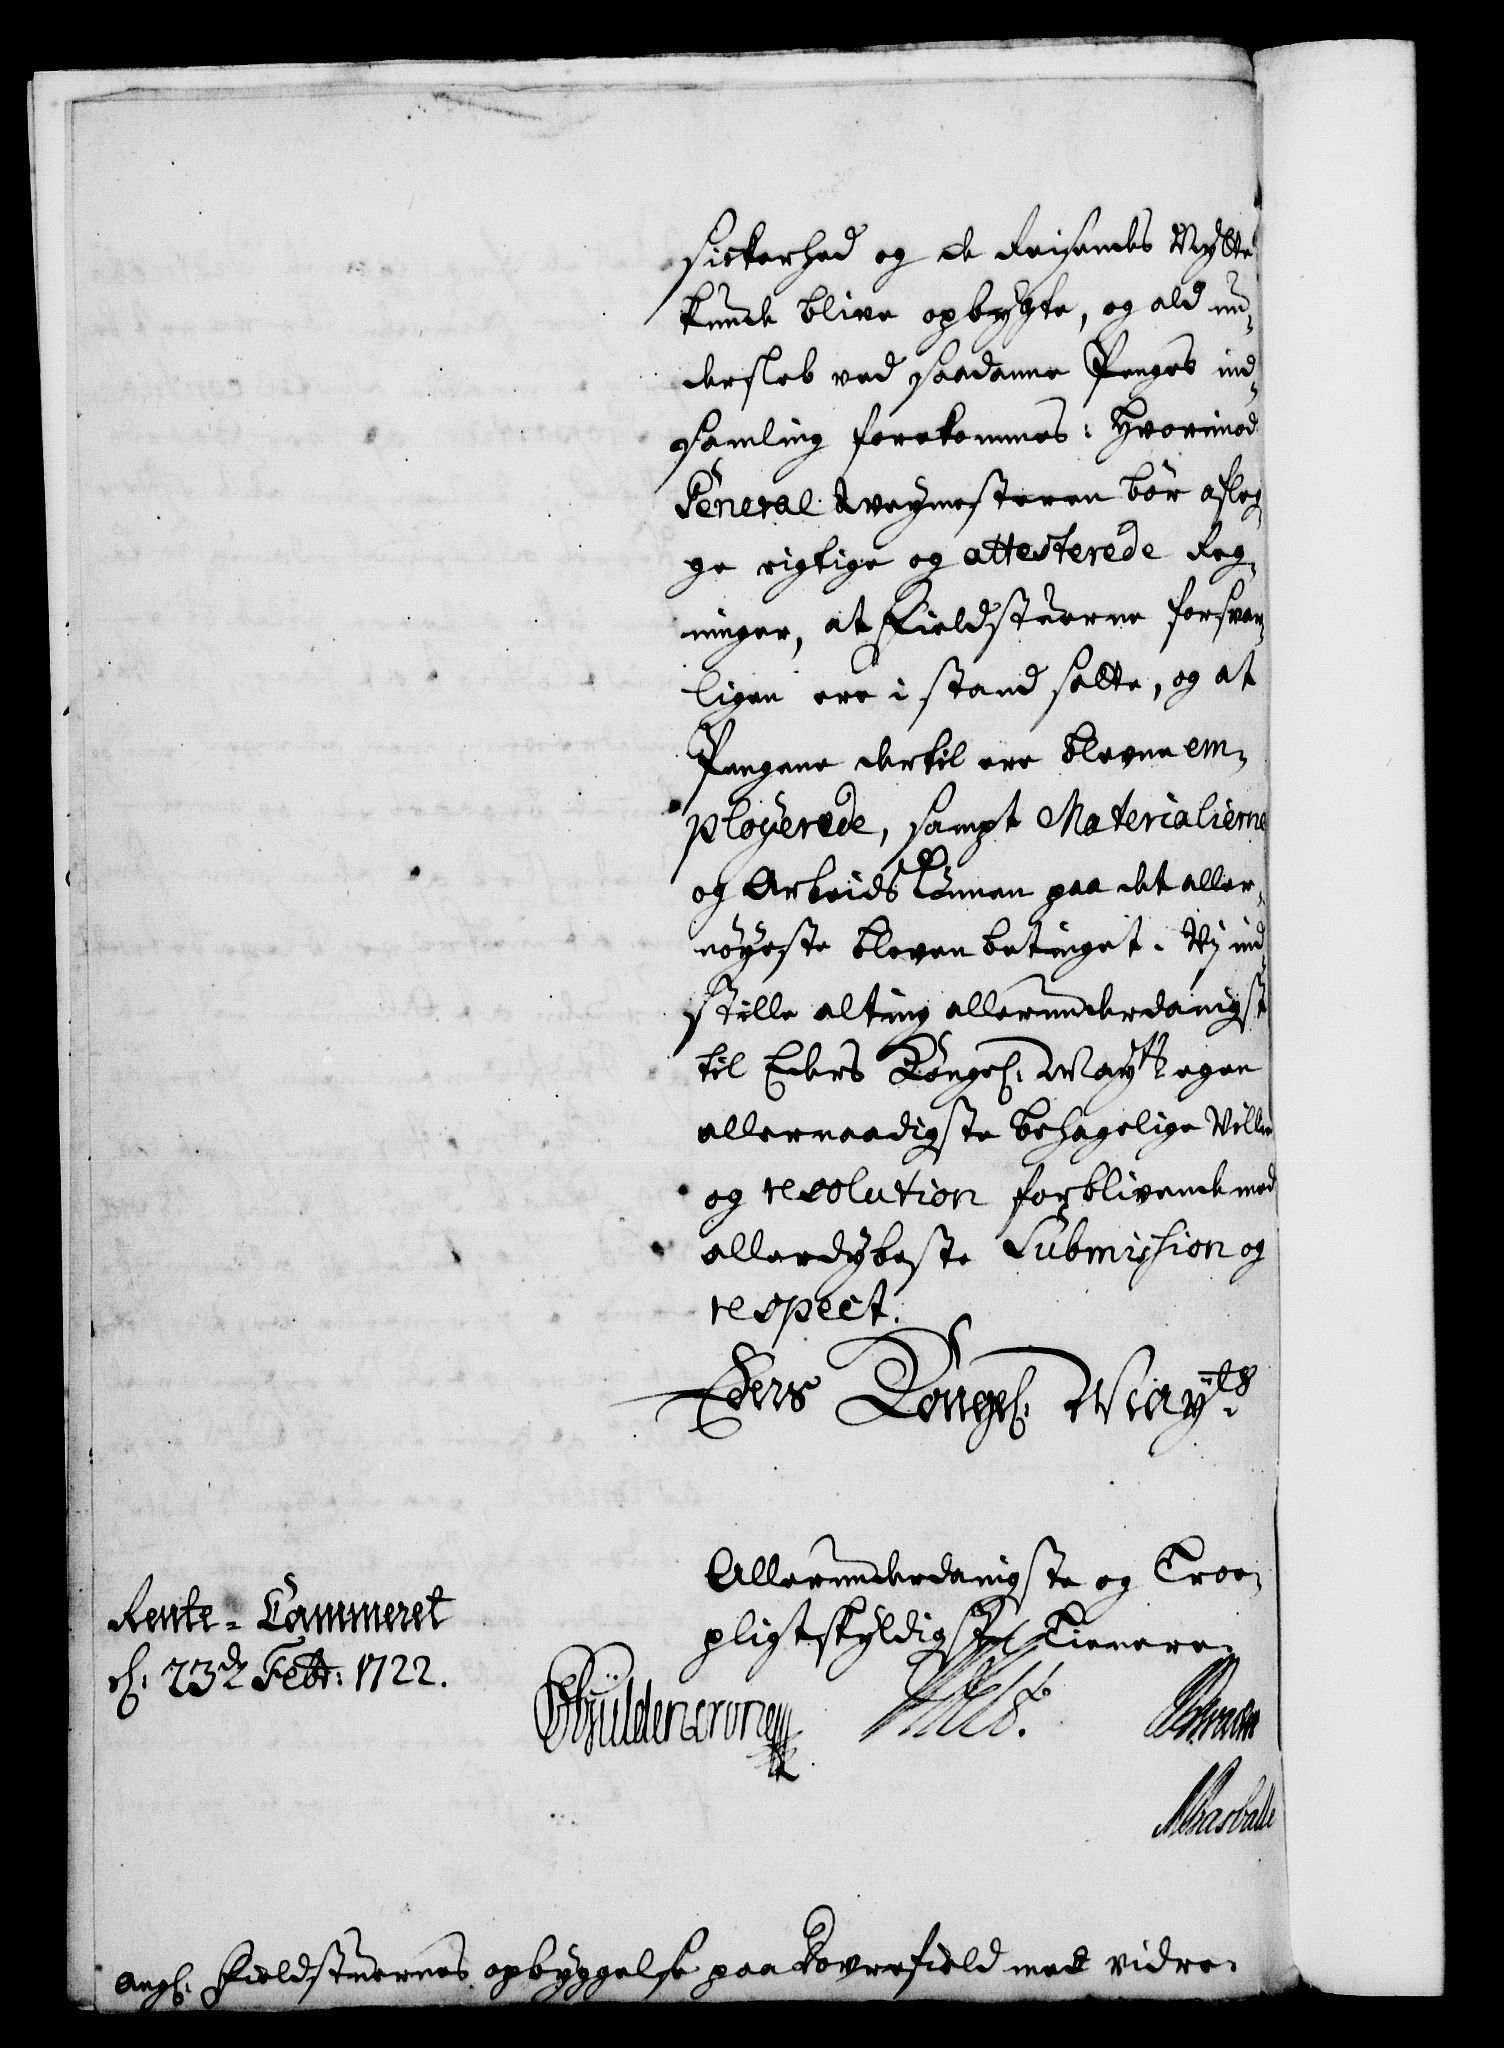 Sickerhed og de Reisendes Nytte
kunde blive opbygte, og ald un-
dersleb ved saadanne Penges ind-
samling forekommes: Hvorimod
General Weymesteren bör afleg-
ge rigtige og attesterede Reg-
ninger, at Fieldstuerne forsvar-
ligen ere i stand satte, og at
Pengene dertil ere blevne em-
ployerede, sampt Materialierne
og Arbeids Lönnen paa det aller-
nöyeste bleven betinget. Vi ind-
stille alting allerunderdanigst
til Eders Kongel: May:ts egen
allernaadigste behagelige Villie
og resolution forblivende med
allerdybeste Submission og
respect.
Eders Kongel: May:ts
Allerunderdanigste og Troe-
pligtskyldigste Tienere.
Rente-Cammeret
d: 23de Febr: 1722.
Gyldencrone
angl: Fieldstuernes opbyggelse paa Dovrefield med vidre.